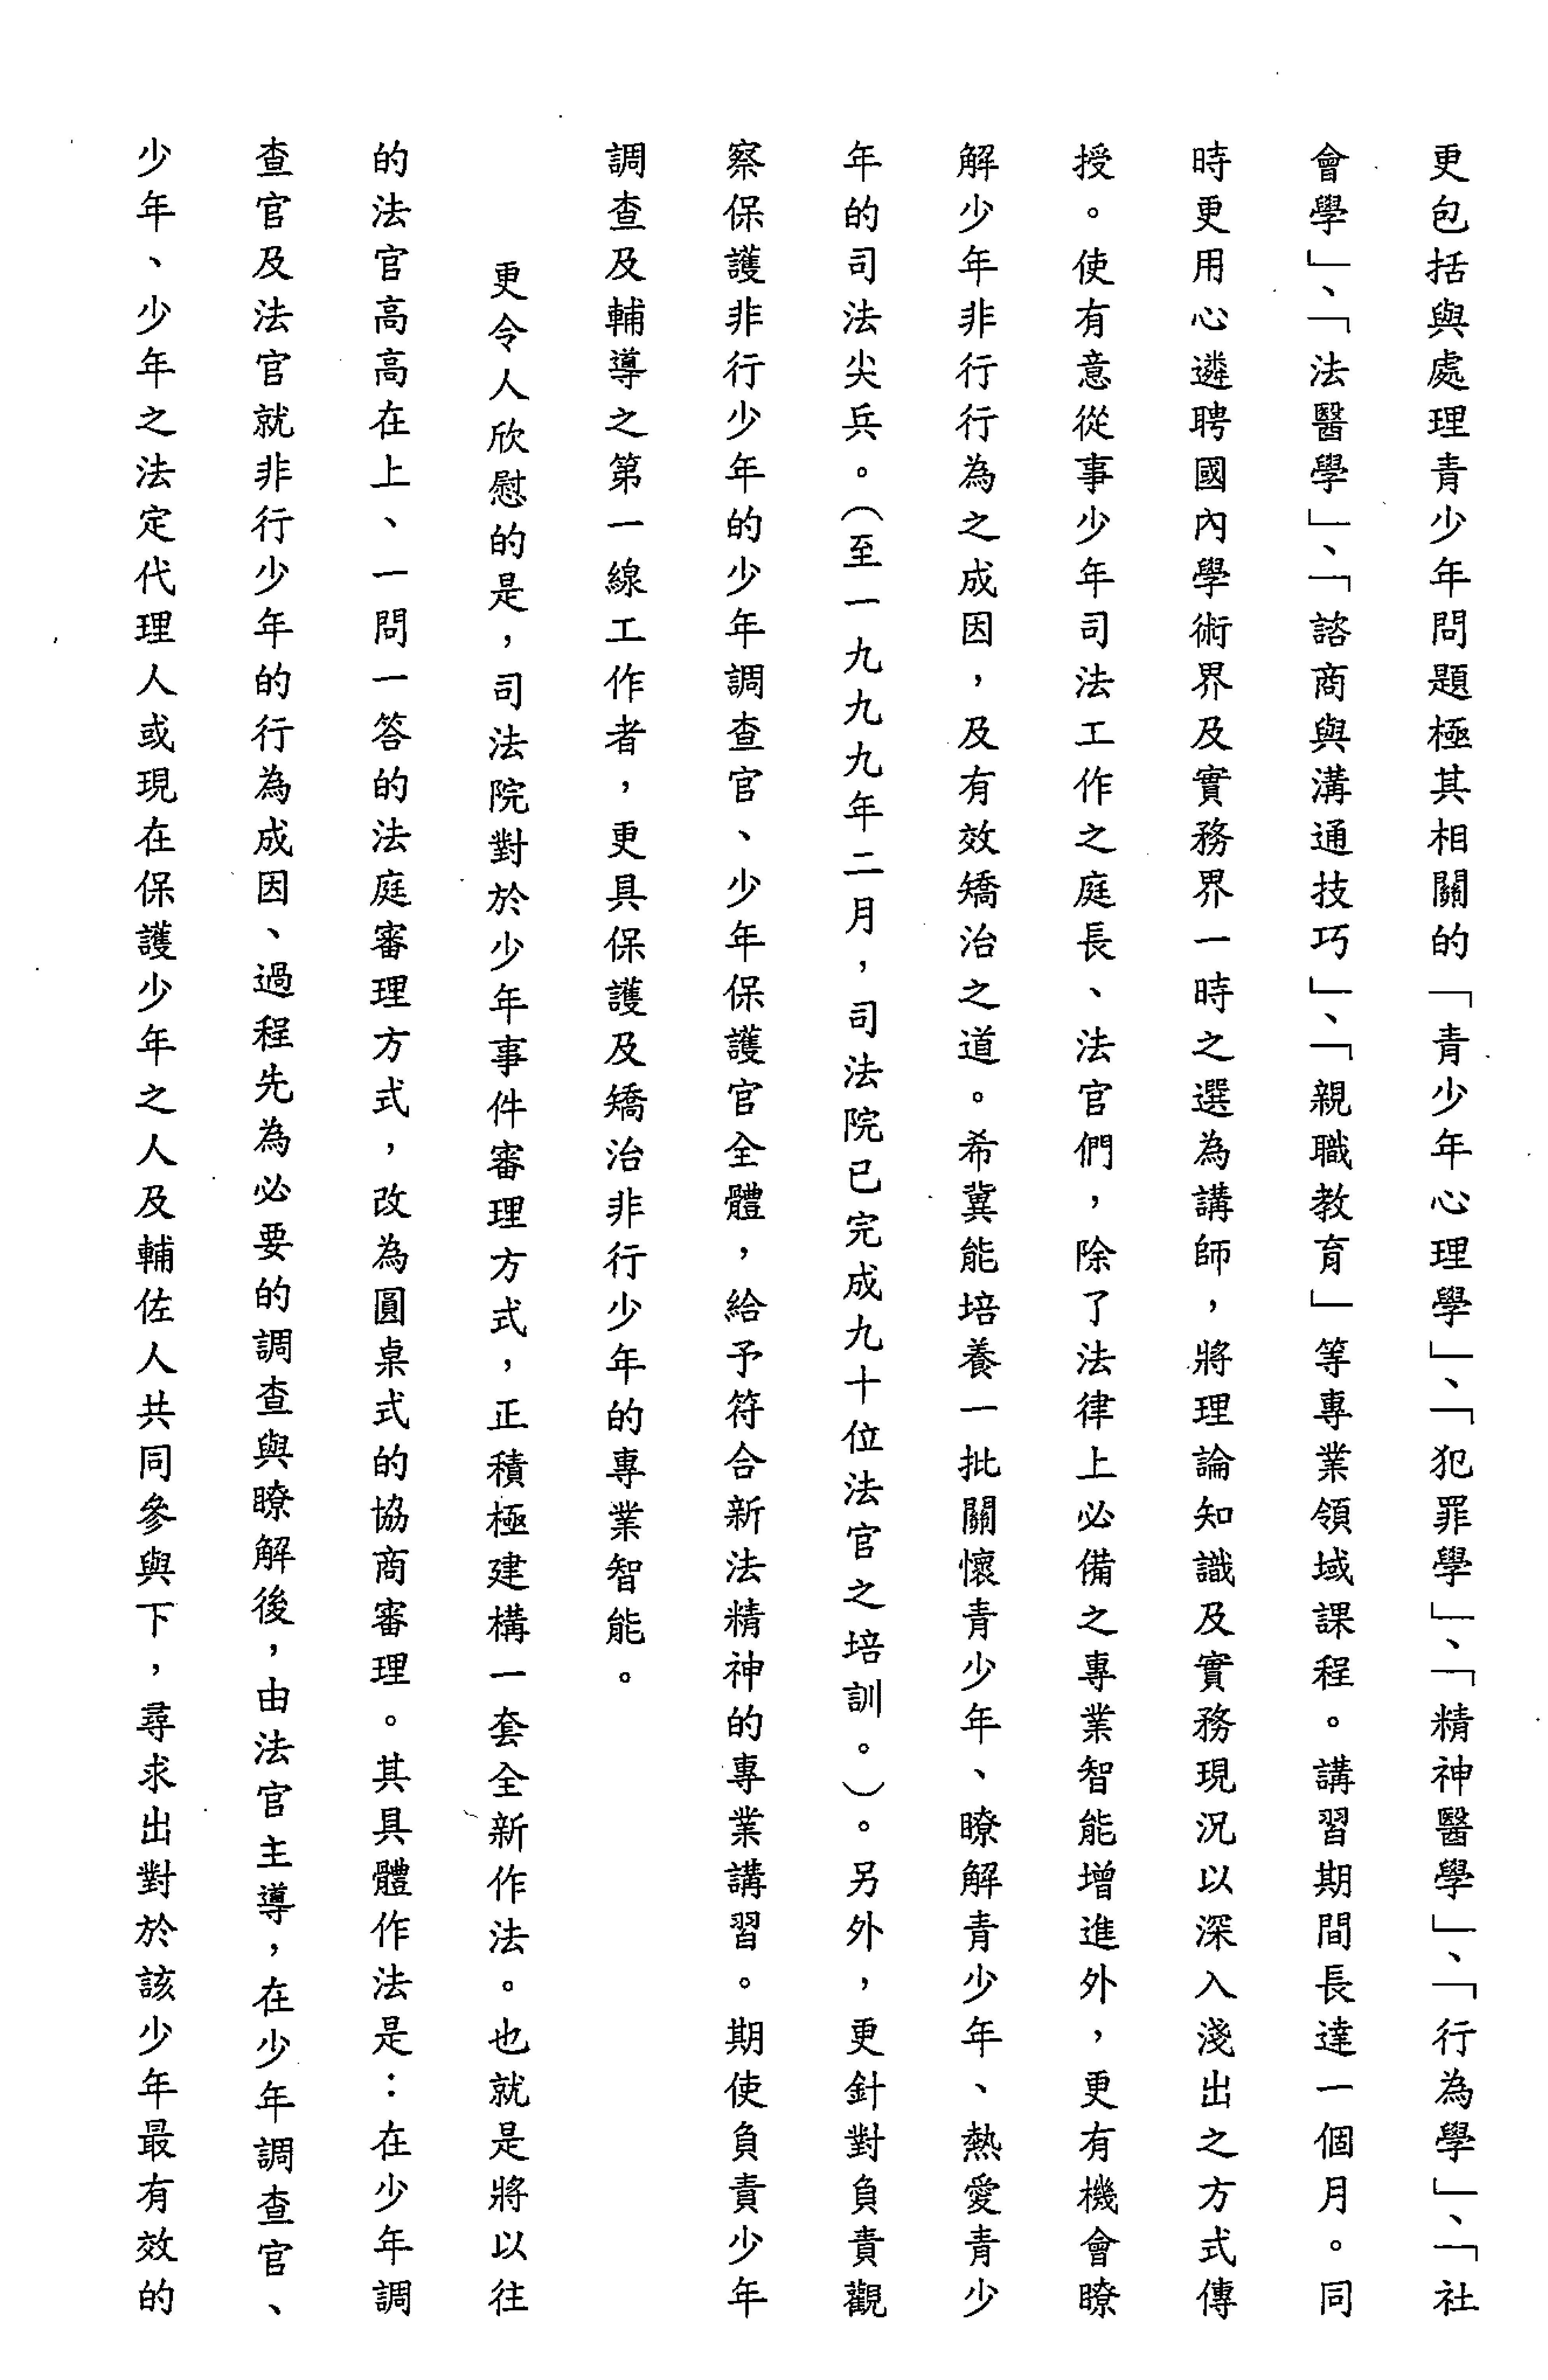 更包括與處理青少年問題極其相關的「青少年心理學」、「犯罪學」、「精神醫學」、「行為學」、「社
會學」、「法醫學」、「諮商與溝通技巧」、「親職教育」等專業領域課程。講習期間長達一個月。同
時更用心遴聘國內學術界及實務界一時之選為講師，將理論知識及實務現況以深入淺出之方式傳
授。使有意從事少年司法工作之庭長、法官們，除了法律上必備之專業智能增進外，更有機會瞭
解少年非行行為之成因，及有效矯治之道。希冀能培養一批關懷青少年、瞭解青少年、熱愛青少
年的司法尖兵。（至一九九九年二月，司法院已完成九十位法官之培訓。）。另外，更針對負責觀
察保護非行少年的少年調查官、少年保護官全體，給予符合新法精神的專業講習。期使負責少年
調查及輔導之第一線工作者，更具保護及矯治非行少年的專業智能。
更令人欣慰的是，司法院對於少年事件審理方式，正積極建構一套全新作法。也就是將以往
的法官高高在上、一問一答的法庭審理方式，改為圓桌式的協商審理。其具體作法是：在少年調
查官及法官就非行少年的行為成因、過程先為必要的調查與瞭解後，由法官主導，在少年調查官、
少年、少年之法定代理人或現在保護少年之人及輔佐人共同參與下，尋求出對於該少年最有效的